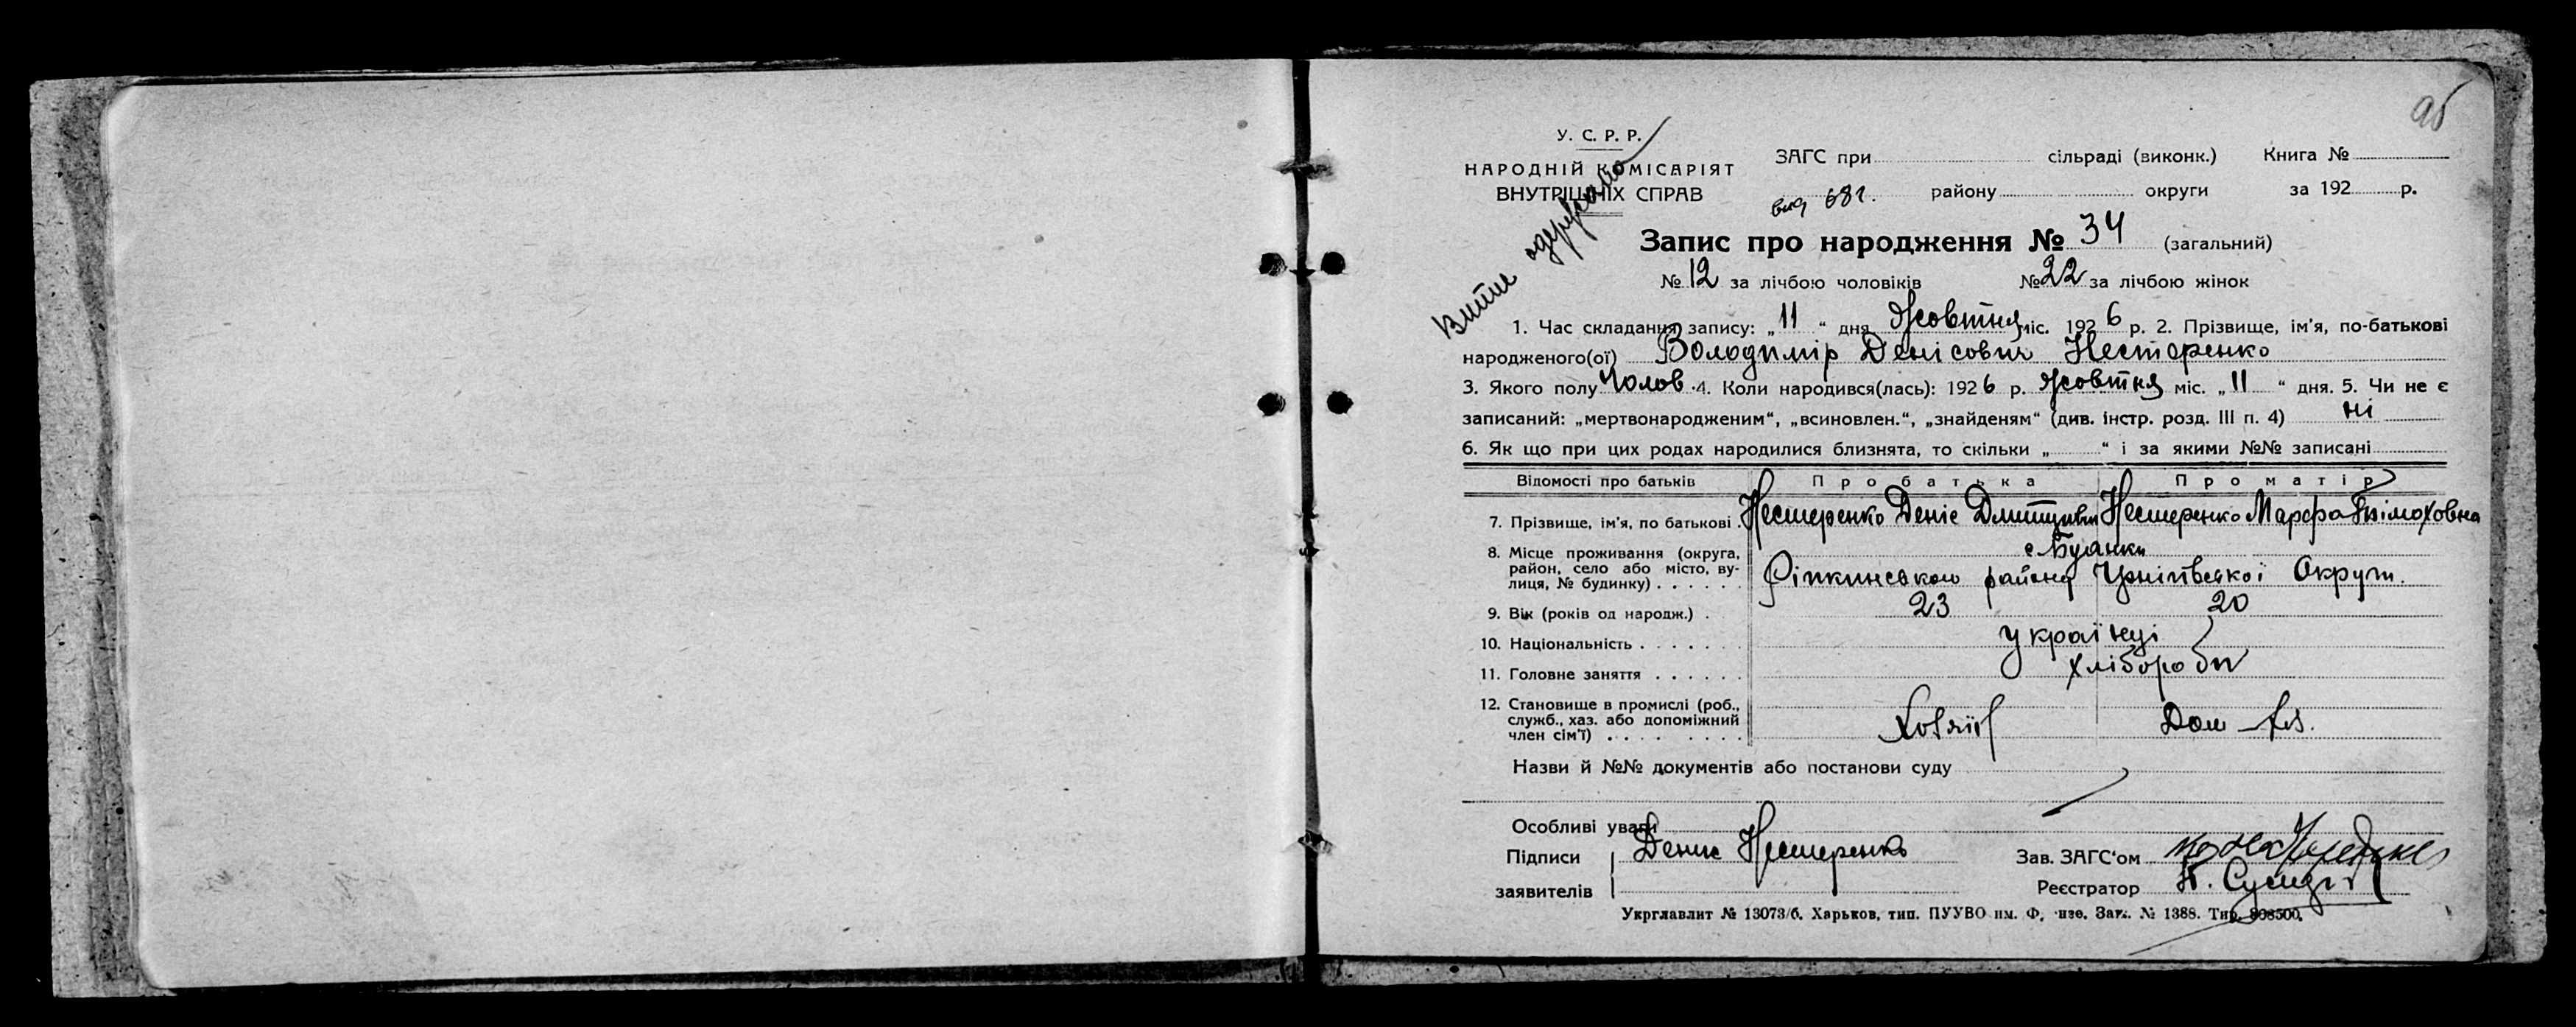 У. С. Р. Р.
НАРОДНІЙ КОМІСАРІЯТ
ВНУТРІШНІХ СПРАВ
Витяг одержано
ЗАГС при сільраді (виконк.) Книга №
681. району округи за 192 р.
Запис про народження № 34 (загальний)
№ 12 за лічбою чоловіків № 22 за лічбою жінок
1. Час складання запису: „ 11 “ дня Жовтня міс. 192 6 р. 2. Прізвище, ім'я, по-батькові
народженого(ої) Володимір Денісович Нестеренко
3. Якого полу Чолов. 4. Коли народився(лась): 192 6 р. Жовтня міс. „ 11 “ дня. 5. Чи не є
записаний: „мертвонародженим“, „всиновлен.“, „знайденям“ (див. інстр. розд. III п. 4) ні
6. Як що при цих родах народилися близнята, то скільки „ “ і за якими №№ записані
Відомості про батьків Про батька Про матір
7. Прізвище, ім'я, по батькові . Нестеренко Деніс Дмитрович Нестеренко Марфа Тімоховна
8. Місце проживання (округа,
район, село або місто, ву-
лиця, № будинку) . . . . . .
Ріпкинського району Чернігівської Округи.
9. Вік (років од народж.) . 23 20
10. Національність . . . . . . . українці
11. Головне заняття . . . . . . хлібороби
12. Становище в промислі (роб.,
служб., хаз. або допоміжний
член сім'ї) . . . . . . . . Хозяїн Дом – хаз.
Назви й №№ документів або постанови суду
Особливі уваги
Підписи Денис Нестеренко Зав. ЗАГС'ом
заявителів Реєстратор
Укрглавлит № 13073/б. Харьков, тип. ПУУВО им. Ф. Зак. № 1388. Тир.